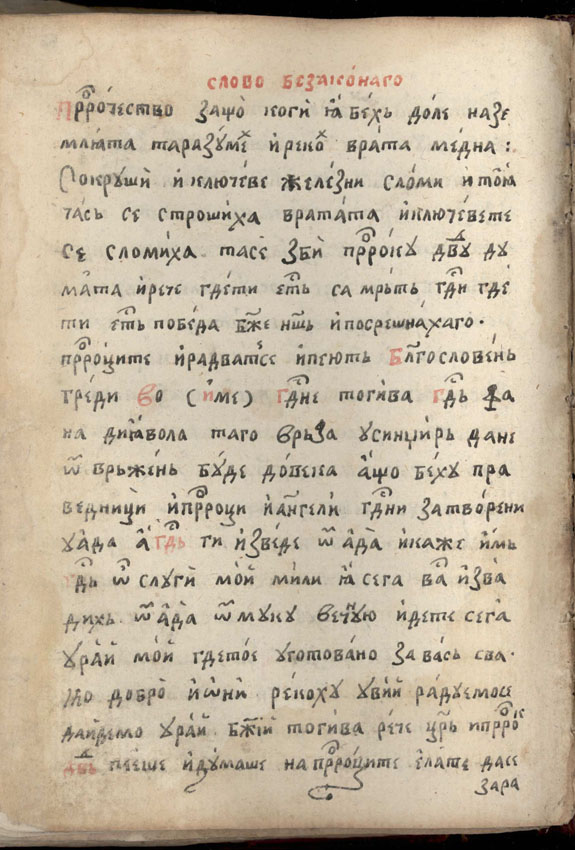 слово безако́наго
Прⷪ҇ро́чество защо̀ коги̂ ꙗ҆̀ бе́хь до́ле назе
млꙗ̂та таразꙋме́ⷯ и҆реко́ⷯ вра́та ме́дна :
Сокрꙋши̂ и҆ключе́ве желе́зни сло́ми и҆ то́ꙗ
часъ се строши́ха врата́та и҆ключе́вете
се сломи́ха. тасѐ зби̂ прⷪ҇ро́кꙋ двⷣꙋ дꙋ
ма̂та и҆рече где́ти е҆́стъ са мръть гдⷭ҇и где́
ти е҆́сть побе́да бж҃е нш҃ь и҆посрешна́хаго·
прⷪ҇ро́ците и҆радватⷭ҇се и҆пе́ють Блг҃ослове́нь
греди во (име) гдⷭ҇не тоги́ва гдⷭ҇ь фа
на диꙗ́вола таго врьза ꙋсинџи́рь дане
ѿ врьже́нь бꙋ́де до́века а҆̀що бе́хꙋ пра
ведници и҆прⷪ҇роци и҆а҆́нг҃ели гдⷭ҇ни затворе́ни
ꙋа҆́да а҆̀ гдⷭ҇ь ти и҆зве́де ѿ а҆́да и҆каже и҆́мь
гдⷭ҇ь ѽ слꙋги̂ мо́й мили ꙗ҆̀ сега ва҆̀ и҆зва́
дихь ѿ а҆́да ѿ мꙋкꙋ вечꙋю и҆дете сега̀
ꙋра́й мо́й гдето́е ꙋгото́вано за ва́сь сва·
ко добро̀ и҆ѻни реко́хꙋ ꙋви́й ра́дꙋемосе
дайдемо ꙋра́й бж҃їй тоги́ва ре́че црⷭ҇ь и҆прⷪ҇ро́ⷦ
двⷣь пее́ше и҆дꙋ́маше на прⷪ҇ро́ците е҆ла́те дасе
зара